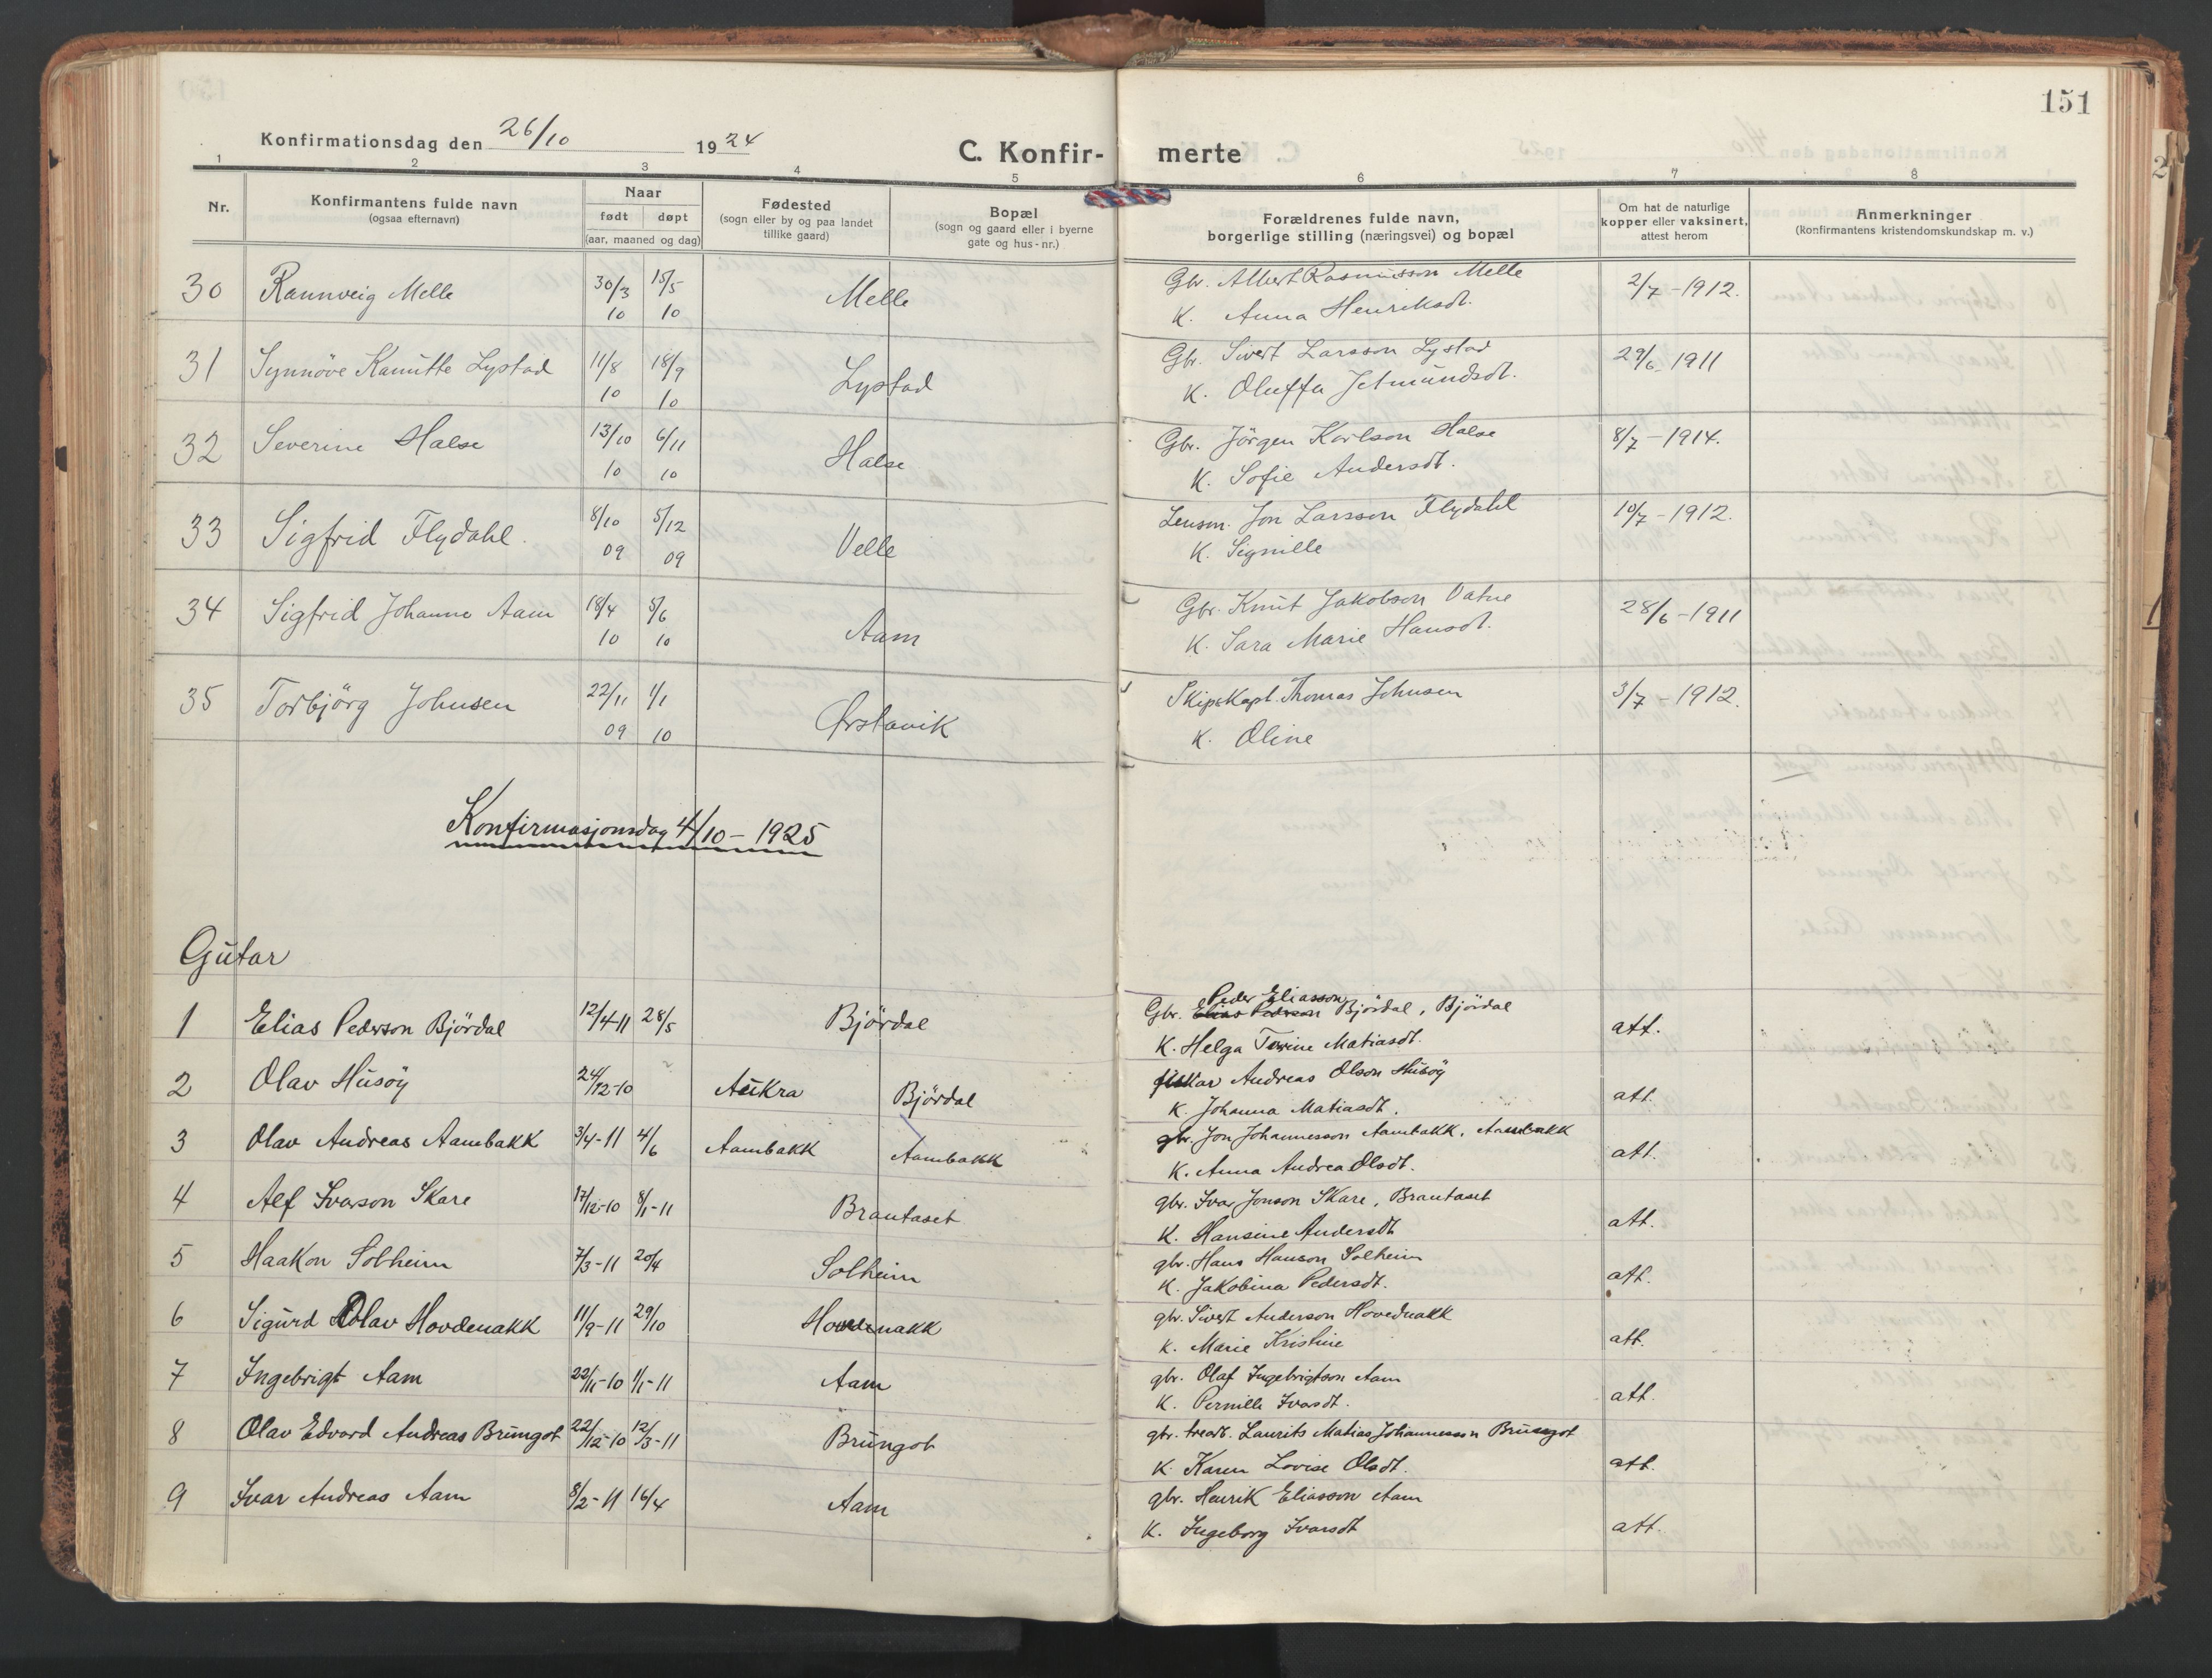 151
Konfirmationsdag den 26/10 1924
C. Konfir- merte
1 2 3 4 5 6 7 8
Nr.
Konfirmantens fulde navn
(ogsaa efternavn)
Naar
født døpt
(aar, maaned og dag)
Fødested
(sogn eller by og paa landet
tillike gaard)
Bopæl
(sogn og gaard eller i byerne
gate og hus-nr.)
Forældrenes fulde navn,
borgerlige stilling (næringsvei) og bopæl
Om hat de naturlige
kopper eller vaksinert,
attest herom
Anmerkninger
(konfirmantens kristendomskundskap m. v.)
30 Rannveig Melle 30/3 15/5 Melle Gbr. Albert Rasmusson Melle 2/7 - 1912.
10 10 K. Anna Henriksdt.
31 Synnöve Kamitte Lystad 11/8 18/9 Lystad Gbr. Sivert Larsson Lystad 29/6 1911
10 10 K. Oluffa Jetmundsdt.
32 Severine Halse 13/10 6/11 Halse Gbr. Jörgen Karlson Halse 8/7 - 1914.
10 10 K. Sofie Andersdt.
33 Sigfrid Flydahl. 8/10 5/12 Velle Lensm. Jon Larsson Flydahl 10/7 - 1912.
09 09 K. Signille
34 Sigfrid Johanne Aam 18/4 5/6 Aam Gbr. Knut Jakobson Vatne 28/6 - 1911
10 10 K. Sara Marie Hansdt.
35 Torbjörg Johnsen 22/11 1/1 Ørstavik Skipskapt. Thomas Johnsen 3/7 - 1912.
09 10 K. Oline
Konfirmasjonsdag 4/10 - 1925
Gutar
Peder Eliasson
1 Elias Pederson Björdal 12/4-11 28/5 Björdal Gbr. Elias Pederson Björdal, Björdal att.
K. Helga Tomine Matiasdt.
2 Olav Husöy 24/12-10 Aukra Björdal fiskar Andreas Olson Husöy att.
K. Johanna Matiasdt.
3 Olav Andreas Aambakk 3/4-11 4/6 Aambakk Aambakk gbr. Jon Johannesson Aambakk, Aambakk att.
K. Anna Andrea Olsdt.
4 Alf Ivarson Skare 17/12-10 8/1-11 Brautaset gbr. Ivar Jonson Skare, Brautaset att.
K. Hansine Andersdt
5 Haakon Solheim 7/3-11 20/4 Solheim gbr. Hans Hanson Solheim att.
K. Jakobina Pedersdt.
6 Sigurd Olav Hovdenakk 11/9-11 29/10 Hovdenakk gbr. Sivert Anderson Hovednakk att.
K. Marie Kristine
7 Ingebrigt Aam 22/11-10 1/1-11 Aam gbr. Olaf Ingebrigtson Aam att.
K. Pernille Ivarsdt.
8 Olav Edvard Andreas Brungot 22/12-10 12/3-11 Brungot gbr. treart. Laurits Matias Johannesson Brungot att.
K. Karen Lovise Olsdt.
9 Ivar Andreas Aam 8/2-11 16/4 Aam gbr. Henrik Eliasson Aam att.
K. Ingeborg Ivarsdt